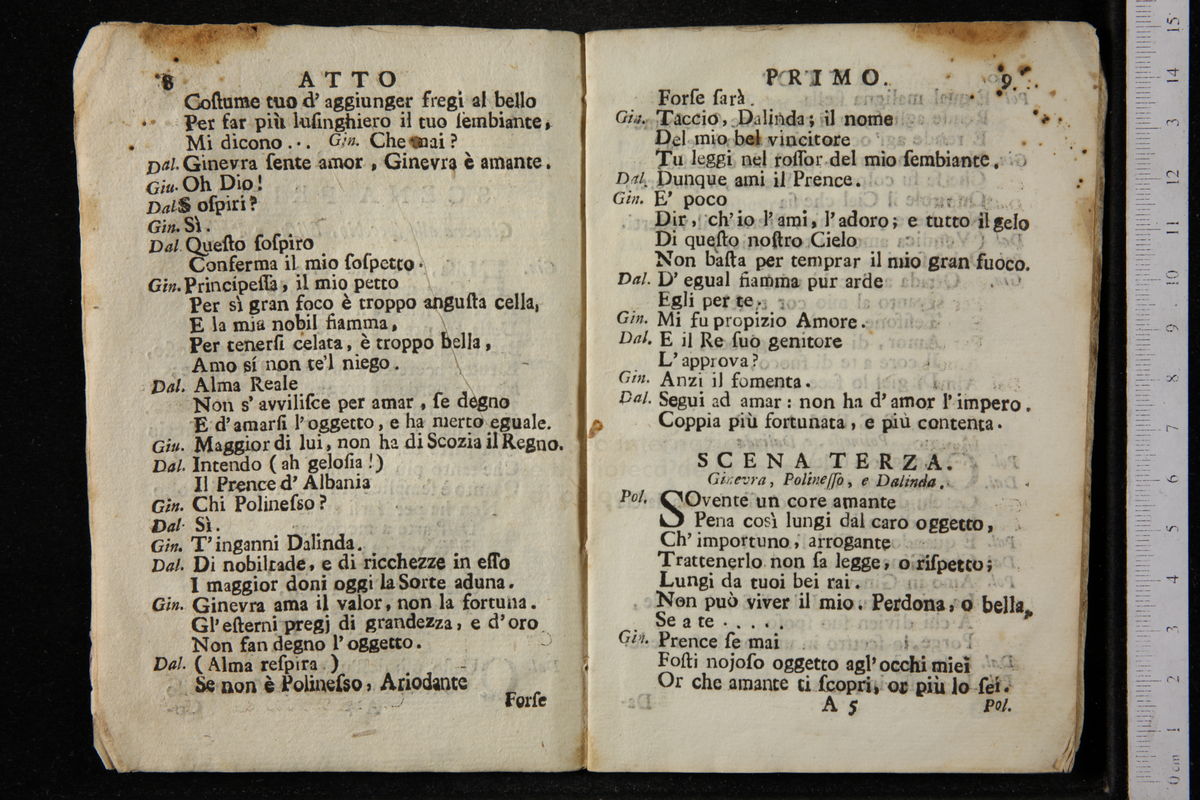 8 ATTO
Coſtume tuo d' aggiunger fregi al bello
Per far più luſinghiero il tuo ſembiante,
Mi dicono ... Gin. Che mai?
Dal. Ginevra ſente amor, Ginevra è amante.
Giu. Oh Dio!
Dal S oſpiri?
Gin. Sì.
Dal Queſto ſoſpiro
Conferma il mio ſoſpetto.
Gin. Principeſſa, il mio petto
Per sì gran foco è troppo anguſta cella,
E la mia nobil fiamma,
Per tenerſi celata, è troppo bella,
Amo sí non te'l niego.
Dal. Alma Reale
Non s' avviliſce per amar, ſe degno
E d'amarſi l'oggetto, e ha merto eguale.
Giu. Maggior di lui, non ha di Scozia il Regno.
Dal. Intendo (ah geloſia!)
Il Prence d' Albania
Gin. Chi Polineſso?
Dal. Sì.
Gin. T'inganni Dalinda.
Dal. Di nobiltade, e di ricchezze in eſſo
I maggior doni oggi la Sorte aduna.
Gin. Ginevra ama il valor, non la fortuna.
Gl'eſterni pregj di grandezza, e d'oro
Non fan degno l'oggetto.
Dal. (Alma reſpira)
Se non è Polineſso, Ariodante
Forſe
PRIMO. 9
Forſe ſarà.
Gin. Taccio, Dalinda; il nome
Del mio bel vincitore
Tu leggi nel roſſor del mio ſembiante.
Dal. Dunque ami il Prence.
Gin. E' poco
Dir, ch'io l'ami, l'adoro; e tutto il gelo
Di queſto noſtro Cielo
Non baſta per temprar il mio gran fuoco.
Dal. D' egual fiamma pur arde
Egli per te.
Gin. Mi fu propizio Amore.
Dal. E il Re ſuo genitore
L'approva?
Gin. Anzi il fomenta.
Dal. Segui ad amar: non ha d'amor l'impero.
Coppia più fortunata, e più contenta.
SCENA TERZA.
Ginevra, Polineſſo, e Dalinda.
Pol. SOvente un core amante
Pena così lungi dal caro oggetto,
Ch' importuno, arrogante
Trattenerlo non ſa legge, o riſpetto;
Lungi da tuoi bei rai.
Non può viver il mio. Perdona, o bella,
Se a te . . . . .
Gin. Prence ſe mai
Foſti nojoſo oggetto agl'occhi miei
Or che amante ti ſcopri, or più lo ſei.
A 5 Pol.